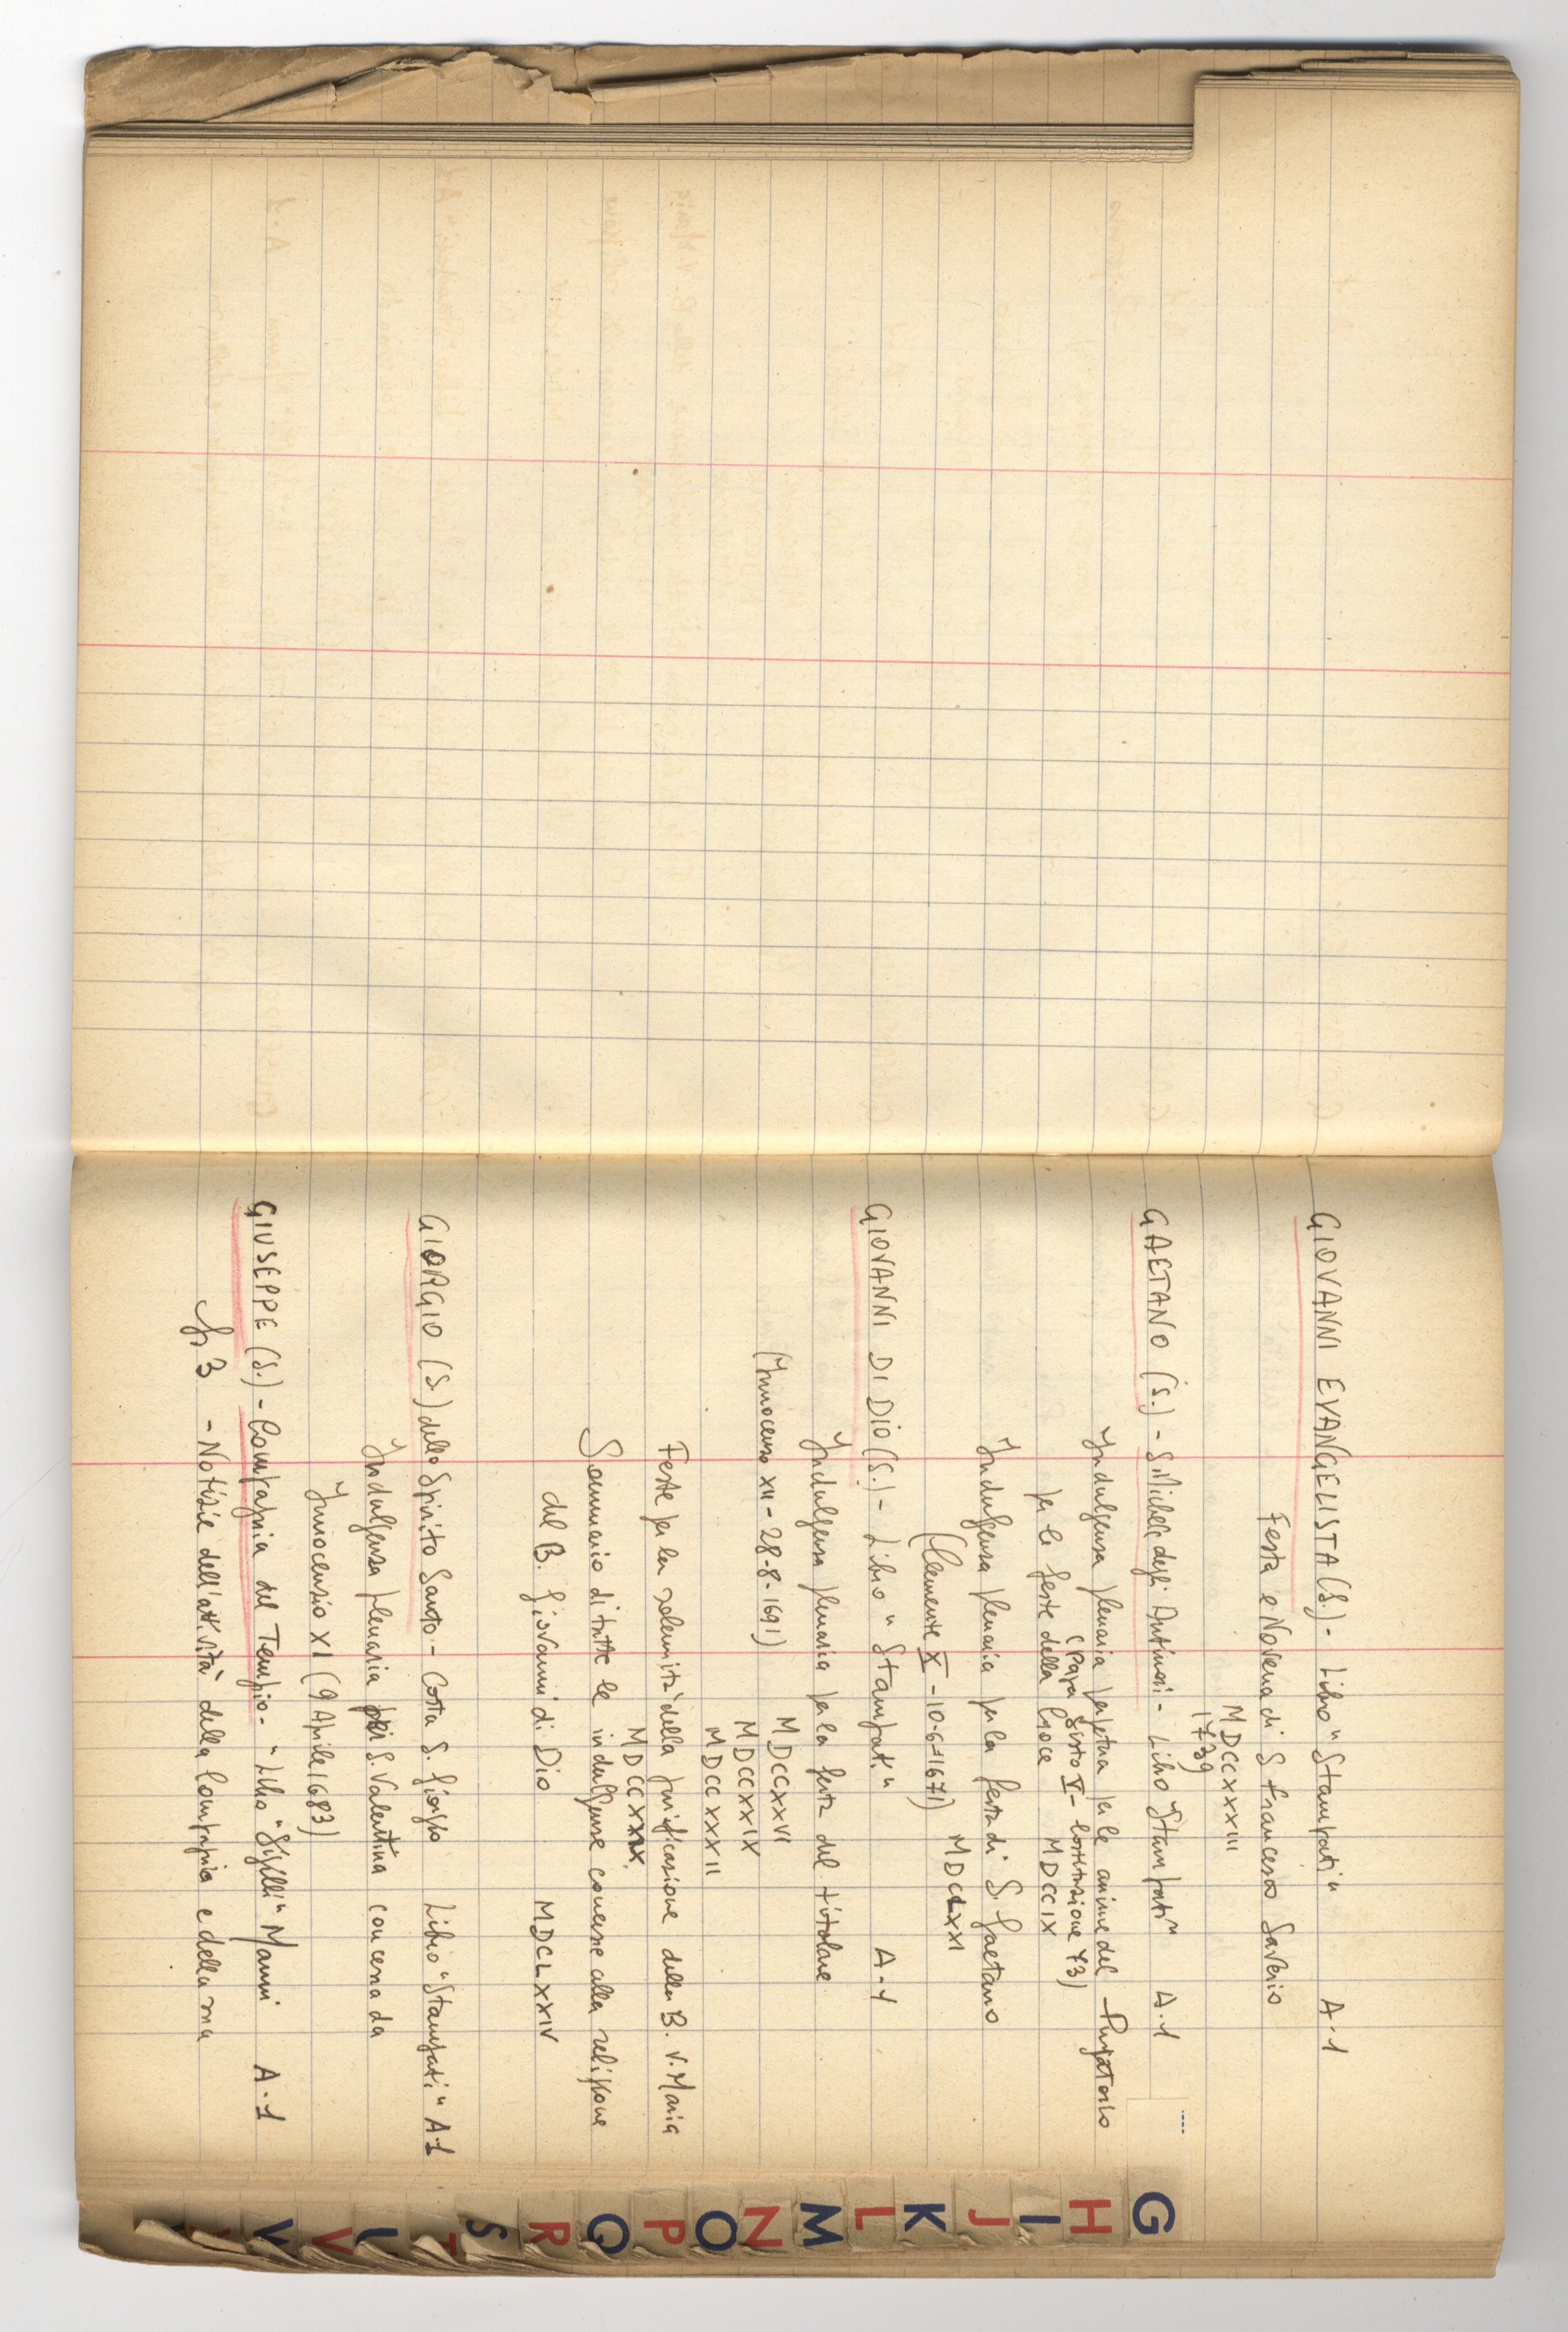 GIOVANNI EVANGELISTA (S.) - Libro "Stampati" A-1
Festa e Novena di S Francesco Saverio
MDCCXXXIII
1739
GAETANO (S.) - S. Michele degli Antinori - Libro "Stampati" A-1
Indulgenza plenaria perpetua per le anime del Purgatorio
(Papa Sisto V - Costituzione 73)
per le feste della Croce MDCCIX
Indulgenza plenaria per la festa di S. Gaetano
(Clemente X - 10-6-1671) MDCLXXI
GIOVANNI DI DIO (S.) - Libro "Stampati" A-1
Indulgenza plenaria per la festa del titolare
(Innocenzo XII - 28-8-1691) MDCCXXVI
MDCCXXIX
MDCCXXXII
Feste per la solennità della purificazione della B. V. Maria
MDCCXXIX.
Sommario di tutte le indulgenze concesse alla religione
del B. Giovanni di Dio MDCLXXIV
GIORGIO (S.) dello Spirito Santo - Costa S. Giorgio Libro "Stampati" A-1
Indulgenza plenaria per S. Valentina concessa da
Innocenzio XI (9 Aprile 1683)
GIUSEPPE (S.) - Compagnia del Tempio - "Libro "Sigilli" Manni A-1
3 - Notizie dell'attività della Compagnia e della sua
G
H
I
J
K
L
M
N
O
P
Q
R
S
T
U
V